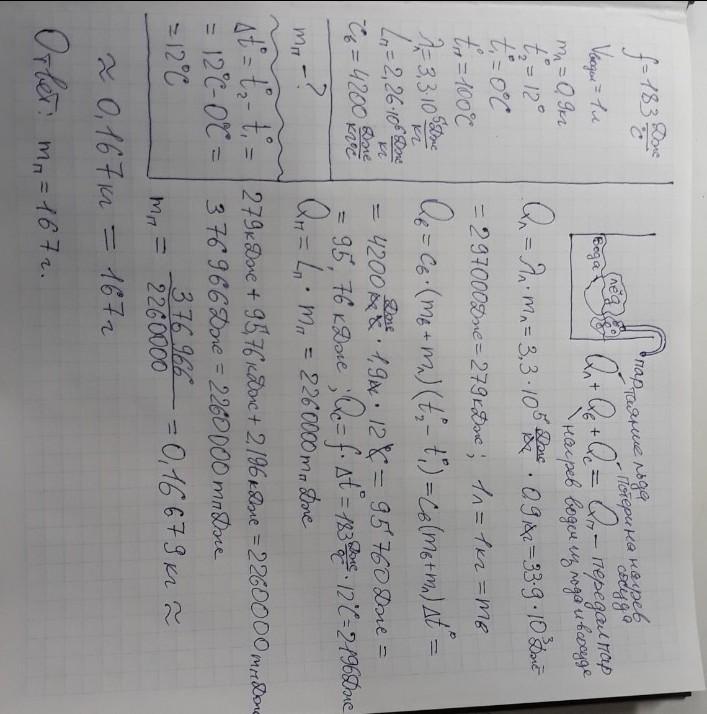 f = 183 Дж/°C
Vводы = 1л
mл = 0,9кг
t°2 = 12°
t°1 = 0°C
t°п = 100°C
λл = 3,3·10⁵ Дж/кг
Lп = 2,26·10⁶ Дж/кг
cв = 4200 Дж/кг°C
mп - ?
Δt° = t°2 - t°1 =
= 12°C - 0°C =
= 12°C
пар
вода
лёд
таяние льда
потери на нагрев сосуда
Qл + Qв + Qс = Qп - передал пар
нагрев воды из льда и в сосуде
Qл = λл · mл = 3,3 · 10⁵ Дж/кг · 0,9кг = 33·9·10³ Дж =
= 297000Дж = 279кДж; 1л = 1кг = mв
Qв = cв · (mв + mл)(t°2 - t°1) = cв(mв + mл)Δt° =
= 4200 Дж/кг°C · 1,9кг · 12°C = 95 760Дж =
= 95,76 кДж; Qс = f · Δt° = 183 Дж/°C · 12°C = 2196Дж
Qп = Lп · mп = 2260000 mп Дж
279кДж + 95,76кДж + 2,196кДж = 2260000 mп Дж
376 966Дж = 2260000 mп Дж
mп = 376 966 / 2260000 = 0,16679 кг ≈
≈ 0,167кг = 167г
Ответ: mп = 167г.